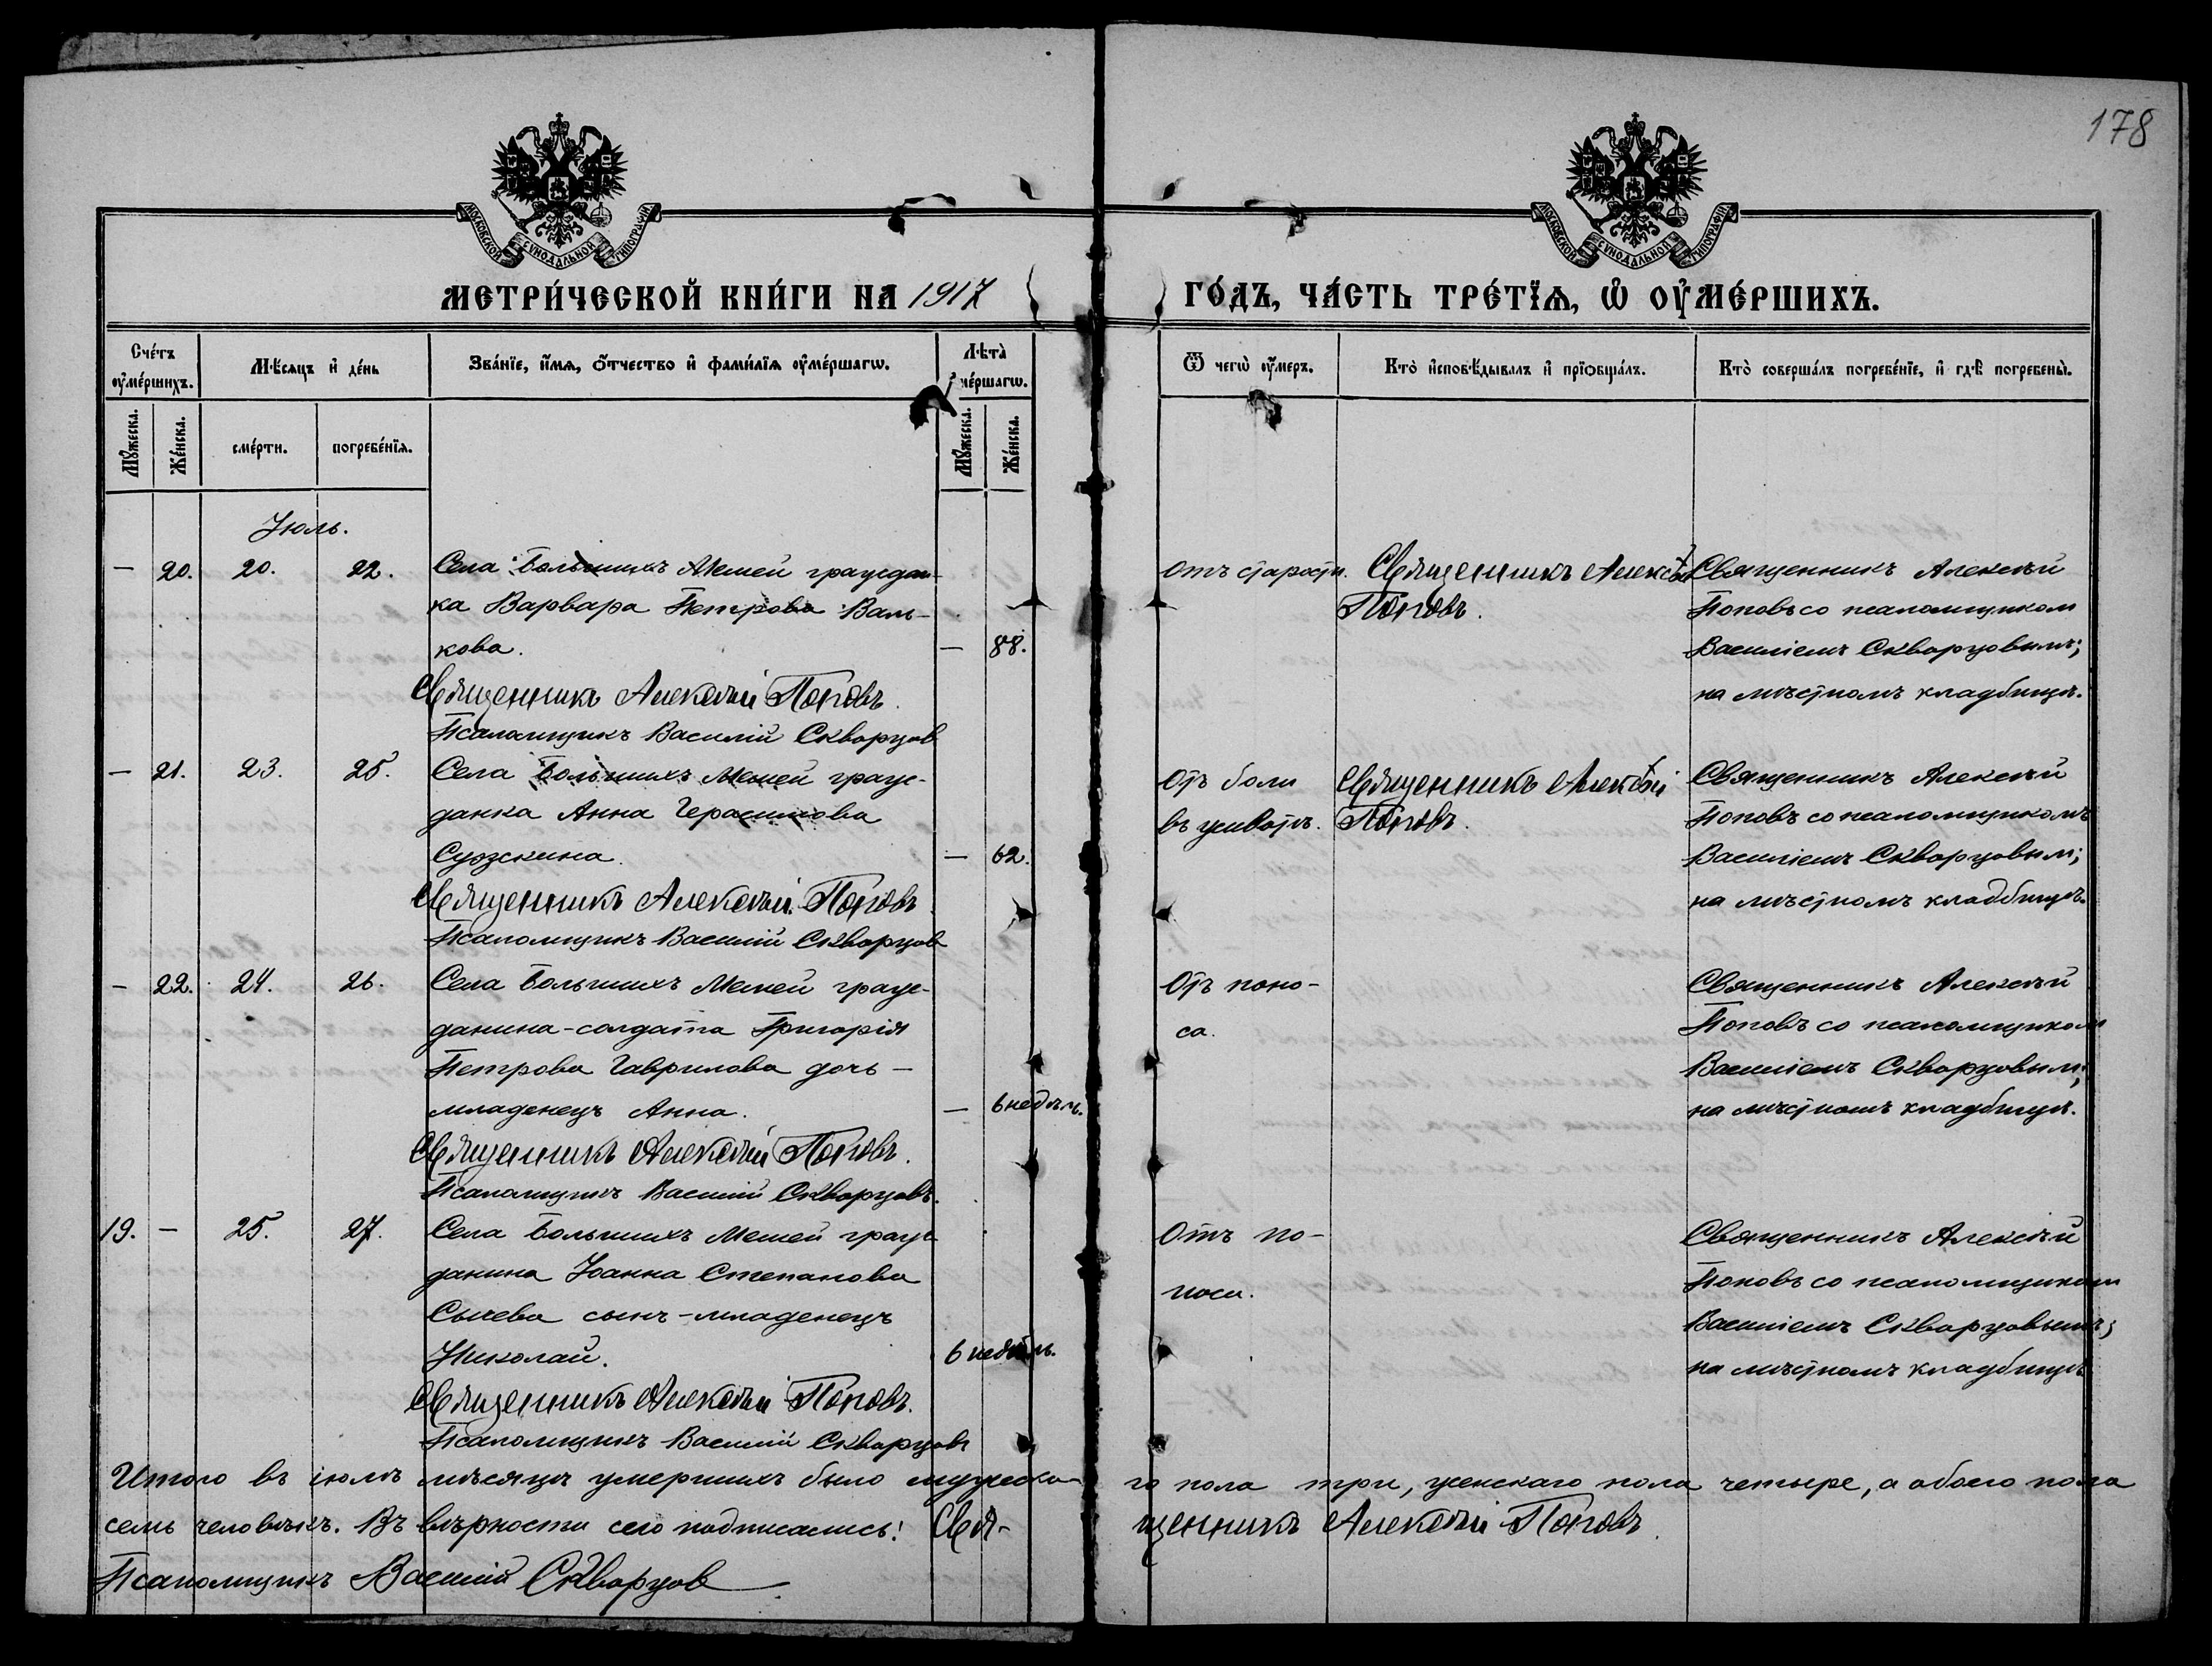 178
МОСКОВСКОЙ СѴНОДАЛЬНОЙ ТИПОГРАФІИ
МОСКОВСКОЙ СѴНОДАЛЬНОЙ ТИПОГРАФІИ
МЕТРИ́ЧЕСКОЙ КНИ́ГИ НА 1917 ГО́ДЪ, ЧА́СТЬ ТРЕ́ТЇѦ, Ѡ҆ ОУ҆МЕ́РШИХЪ.
Сче́тъ оу҆ме́ршихъ.
Мꙋ́жеска.
Же́нска.
Мѣ́сѧцъ и҆ де́нь
сме́рти.
погребе́нїѧ.
Зва́нїе, и҆́мѧ, ѻ҆́тчество и҆ фами́лїѧ оу҆ме́ршагѡ.
Лѣта̀ ме́ршагѡ.
Мꙋ́жеска.
Же́нска.
Ѿ чегѡ̀ оу҆́меръ.
Кто̀ и҆сповѣ́дывалъ и҆ прїѻбща́лъ.
Кто̀ соверша́лъ погребе́нїе, и҆ гдѣ̀ погребены̀.
Іюль.
— 20. 20. 22.
Села Большихъ Мешей граждан-
ка Варвара Петрова Валь-
кова. — 88.
Священникъ Алексѣй Поповъ.
Псаломщикъ Василій Скворцов
Отъ старости.
Священникъ Алексѣй
Поповъ.
Священникъ Алексѣй
Поповъ со псаломщиком
Василіемъ Скворцовымъ;
на мѣстномъ кладбищѣ.
— 21. 23. 25.
Села Большихъ Мешей граж-
данка Анна Герасимова
— 62.
Священникъ Алексѣй Поповъ
Псаломщикъ Василій Скворцов
Отъ боли
въ животѣ.
Священникъ Алексѣй
Поповъ.
Священникъ Алексѣй
Поповъ со псаломщикомъ
Василіемъ Скворцовым;
на мѣстномъ кладбищѣ.
— 22. 24. 26.
Села Большихъ Мешей граж-
данина-солдата Григорія
Петрова Гаврилова дочь —
младенецъ Анна. — 6 недѣль.
Священникъ Алексѣй Поповъ.
Псаломщикъ Василій Скворцовъ.
Отъ поно-
са.
Священникъ Алексѣй
Поповъ со псаломщиком
Василіемъ Скворцовым;
на мѣстномъ кладбищѣ.
19. — 25. 27.
Села Большихъ Мешей граж-
данина Іоанна Степанова
Сычева сынъ-младенецъ
Николай. 6 недѣль.
Священникъ Алексѣй Поповъ.
Псаломщикъ Василій Скворцовъ
Отъ по-
носа.
Священникъ Алексѣй
Поповъ со псаломщиком
Василіемъ Скворцовымъ;
на мѣстномъ кладбищѣ
Итого въ іюлѣ мѣсяцѣ умершихъ было мужска- го пола три, женскаго пола четыре, а обоего пола
семь человѣкъ. Въ вѣрности сего подписались: Свя- щенникъ Алексѣй Поповъ.
Псаломщикъ Василій Скворцов